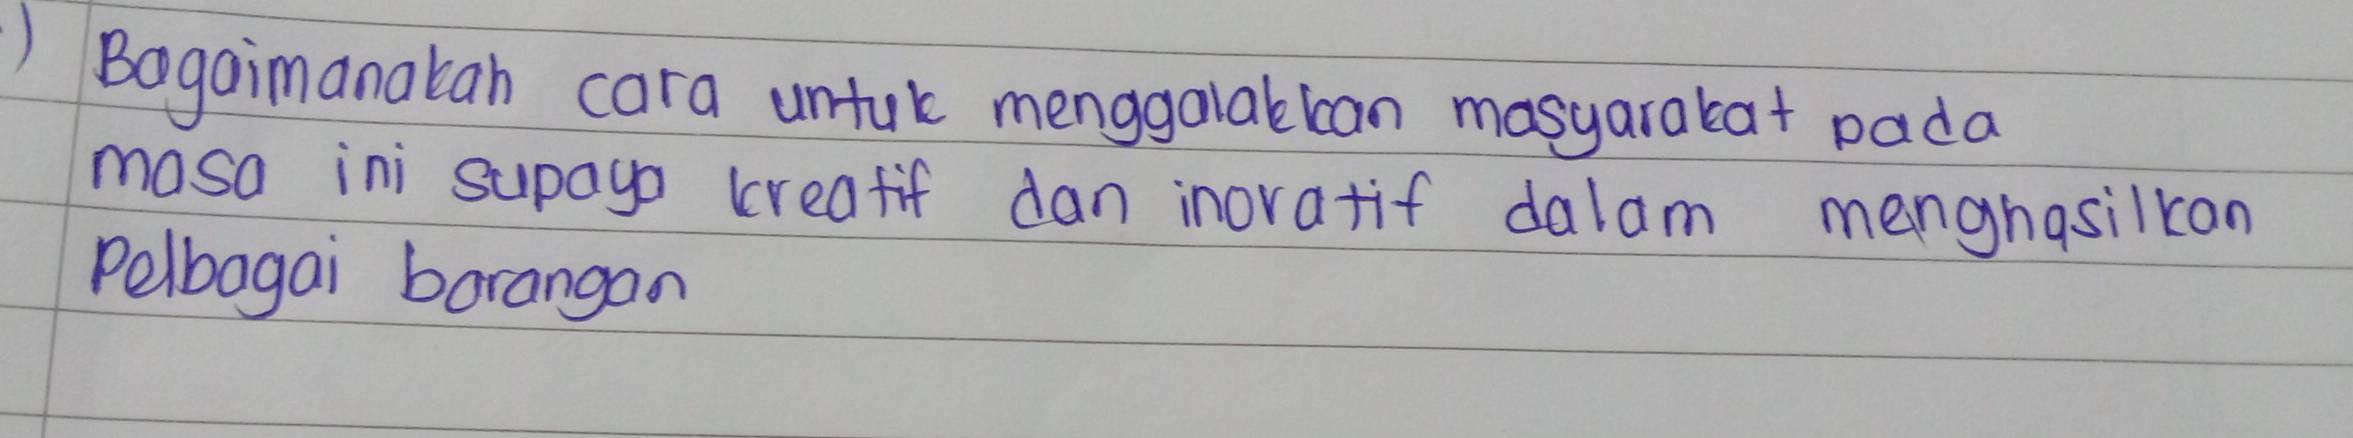 ) Bagaimanakah cara untuk menggalakkan masyarakat pada
masa ini supaya kreatif dan inovatif dalam menghasilkan
Pelbagai barangan